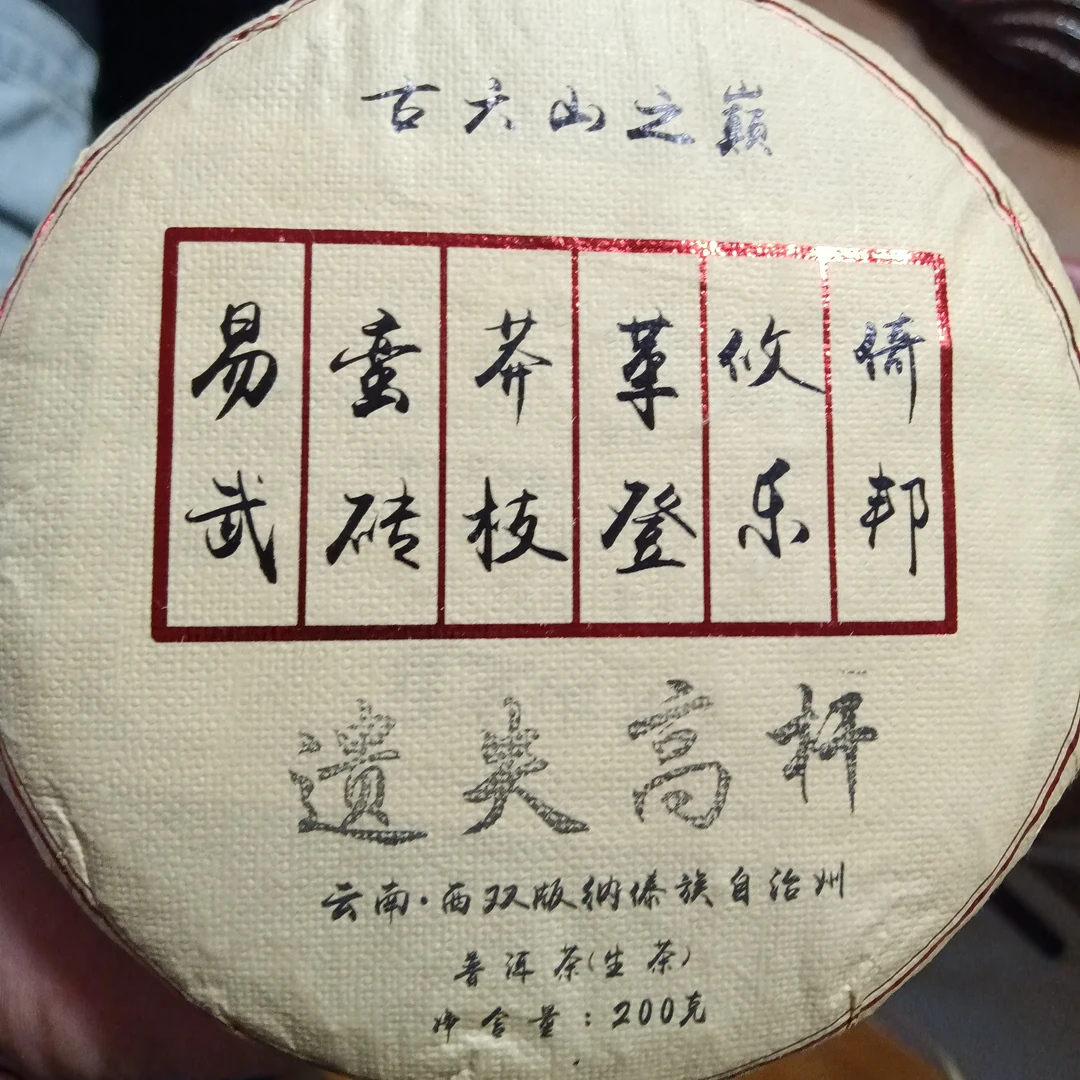 古六山之巅
易武
蛮砖
莽枝
革登
攸乐
倚邦
遗失高杆
云南·西双版纳傣族自治州
普洱茶(生茶)
净含量:200克